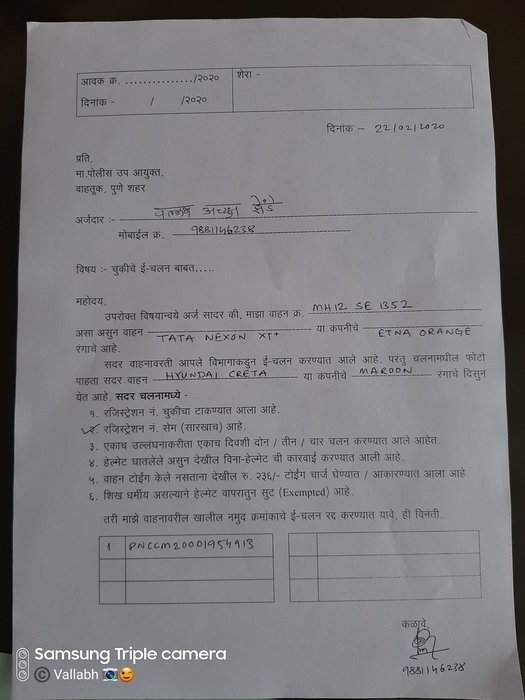 आवक क्र. ................/२०२० शेरा -
दिनांक - / /२०२०
दिनांक – 22/02/2020
प्रति,
मा.पोलीस उप आयुक्त,
वाहतूक, पुणे शहर
अर्जदार :- वल्लभ अच्युत झेंडे
मोबाईल क्र. 9881146238
विषय :- चुकीचे ई-चलन बाबत.....
महोदय,
उपरोक्त विषयान्वये अर्ज सादर की, माझा वाहन क्र. MH12 SE 1352
असा असुन वाहन TATA NEXON XT+ या कंपनीचे ETNA ORANGE
रंगाचे आहे.
सदर वाहनावरती आपले विभागाकडुन ई-चलन करण्यात आले आहे. परंतु चलनामधील फोटो
पाहता सदर वाहन HYUNDAI CRETA या कंपनीचे MAROON रंगाचे दिसुन
येत आहे. सदर चलनामध्ये -
१. रजिस्ट्रेशन नं. चुकीचा टाकण्यात आला आहे.
२. रजिस्ट्रेशन नं. सेम (सारखाच) आहे.
३. एकाच उल्लंघनाकरीता एकाच दिवशी दोन / तीन / चार चलन करण्यात आले आहेत.
४. हेल्मेट घातलेले असुन देखील विना-हेल्मेट ची कारवाई करण्यात आली आहे.
५. वाहन टोईंग केले नसताना देखील रु. २३६/- टोईंग चार्ज घेण्यात / आकारण्यात आला आहे.
६. शिख धर्मीय असल्याने हेल्मेट वापरातुन सुट (Exempted) आहे.
तरी माझे वाहनावरील खालील नमुद क्रमांकाचे ई-चलन रद्द करण्यात यावे, ही विनंती.
1 PNCCM20001954913
कळावे
9881146238
Samsung Triple camera
© Vallabh